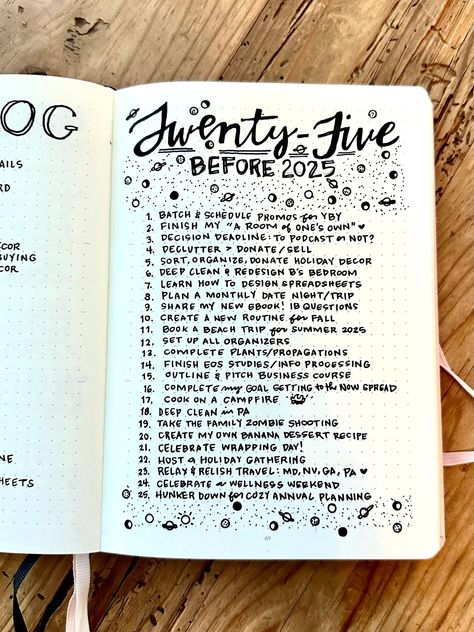 OG
AILS
RD
COR
BUYING
COR
NE
HEETS
Twenty-Five
BEFORE 2025
1. BATCH & SCHEDULE PROMOS for YBY
2. FINISH MY "A ROOM of ONE'S OWN" ♥
3. DECISION DEADLINE: TO PODCAST or NOT?
4. DECLUTTER > DONATE/SELL
5. SORT, ORGANIZE, DONATE HOLIDAY DECOR
6. DEEP CLEAN & REDESIGN B'S BEDROOM
7. LEARN HOW TO DESIGN SPREADSHEETS
8. PLAN A MONTHLY DATE NIGHT/TRIP
9. SHARE MY NEW EBOOK! 1B QUESTIONS
10. CREATE A NEW ROUTINE for FALL
11. BOOK A BEACH TRIP for SUMMER 2025
12. SET UP ALL ORGANIZERS
13. COMPLETE PLANTS/PROPAGATIONS
14. FINISH EOS STUDIES/INFO PROCESSING
15. OUTLINE & PITCH BUSINESS COURSE
16. COMPLETE my GOAL GETTING to the NOW SPREAD
17. COOK ON A CAMPFIRE
18. DEEP CLEAN in PA
19. TAKE THE FAMILY ZOMBIE SHOOTING
20. CREATE MY OWN BANANA DESSERT RECIPE
21. CELEBRATE WRAPPING DAY!
22. HOST a HOLIDAY GATHERING
23. RELAX & RELISH TRAVEL: MD, NV, GA, PA ♥
24. CELEBRATE a WELLNESS WEEKEND
25. HUNKER DOWN for COZY ANNUAL PLANNING